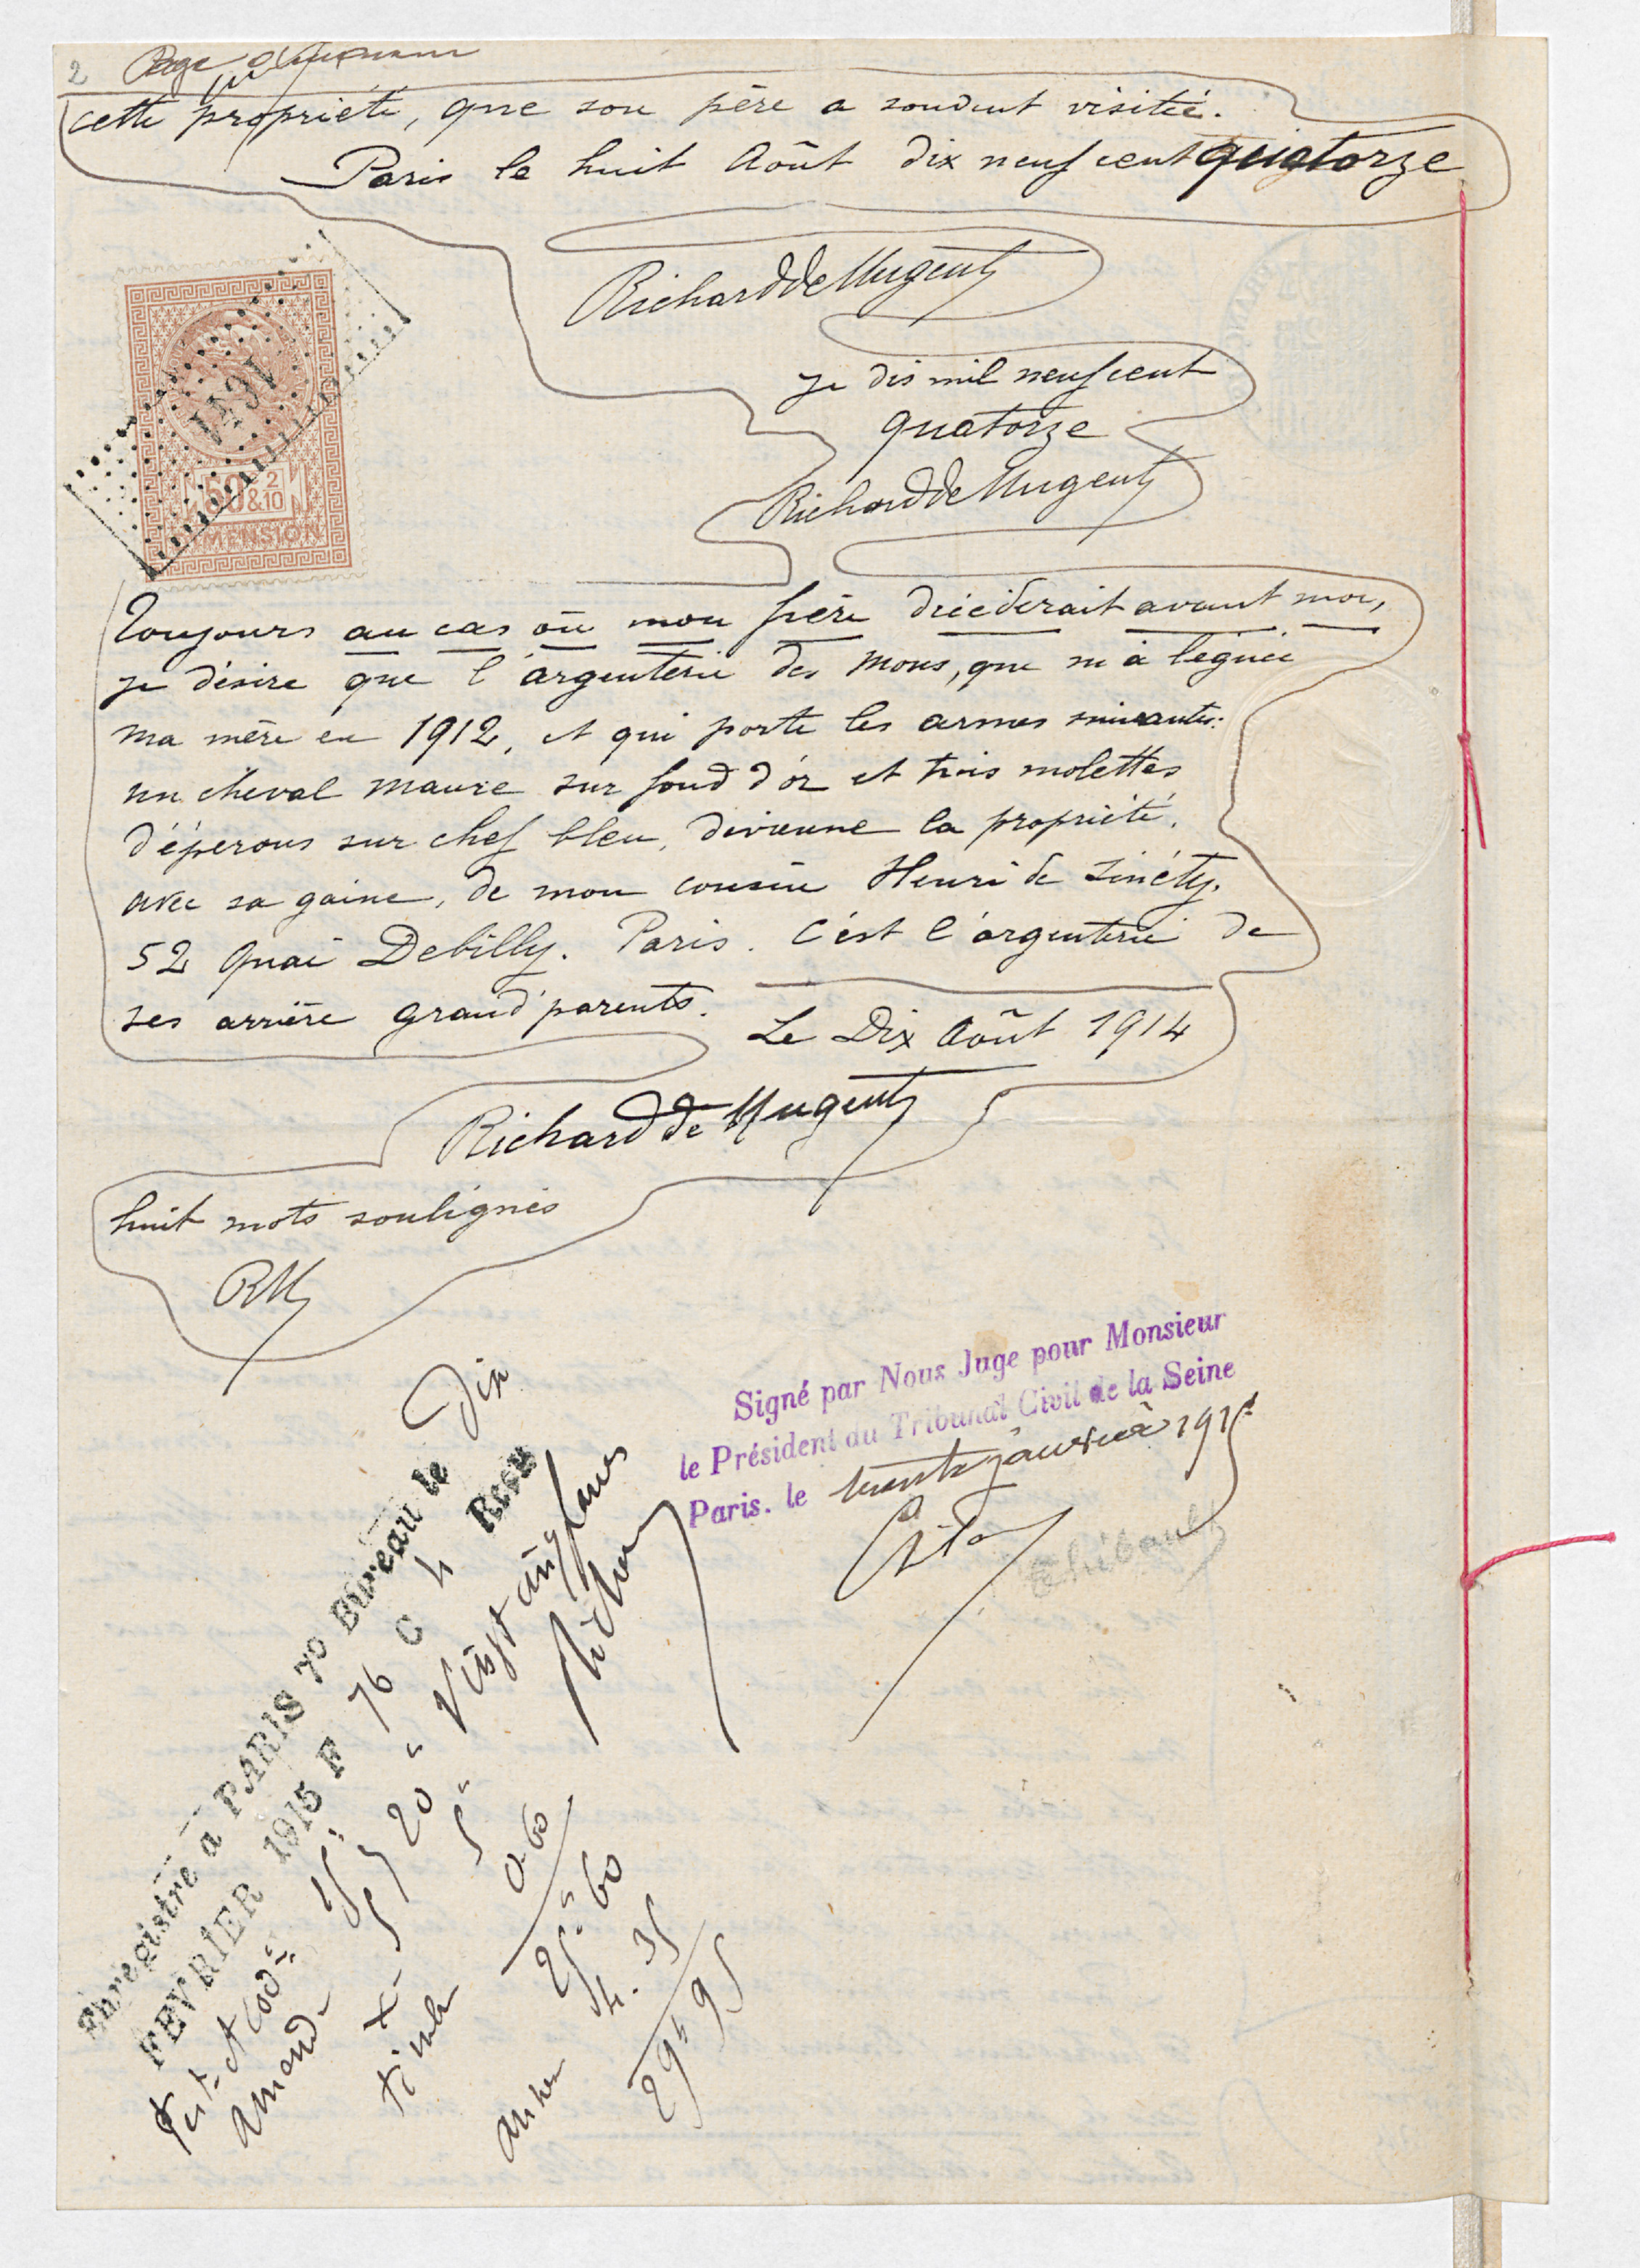 2 Page
cette propriété, que son père a souvent visitée.
Paris le huit Août dix neuf cent quatorze
Richard de Nugent
je dis mil neuf cent
quatorze
Richard de Nugent
50 & 2/10
DIMENSION
Toujours au cas où mon frère décéderait avant moi,
je désire que l'argenterie des Mons, que m'a léguée
ma mère en 1912, et qui porte les armes suivantes:
un cheval maure sur fond d'or et trois molettes
d'éperons sur chef bleu, devienne la propriété,
avec sa gaine, de mon cousin Henri de Sinéty.
52 Quai Debilly. Paris. C'est l'argenterie de
ses arrière grand'parents.
Le Dix Août 1914
Richard de Nugent
huit mots soulignés
RN
Signé par Nous Juge pour Monsieur
le Président du Tribunal Civil de la Seine
Paris. le trente janvier 1915
Thibault
Enregistré à PARIS 7º Bureau le Dix
FEVRIER 1915 F 76 C 4 Reçu
Vingt cinq francs
Test. et Cod.
Amend.
20 "
5 "
timbre 0.60
25.60
4.35
29.95